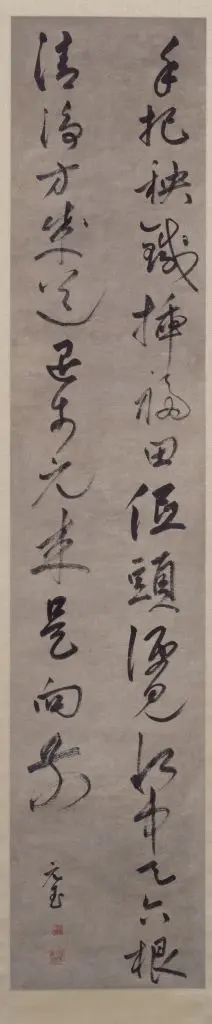 手把秧鍼插福田低頭便見水中天六根
清淨方成道退步元來是向前